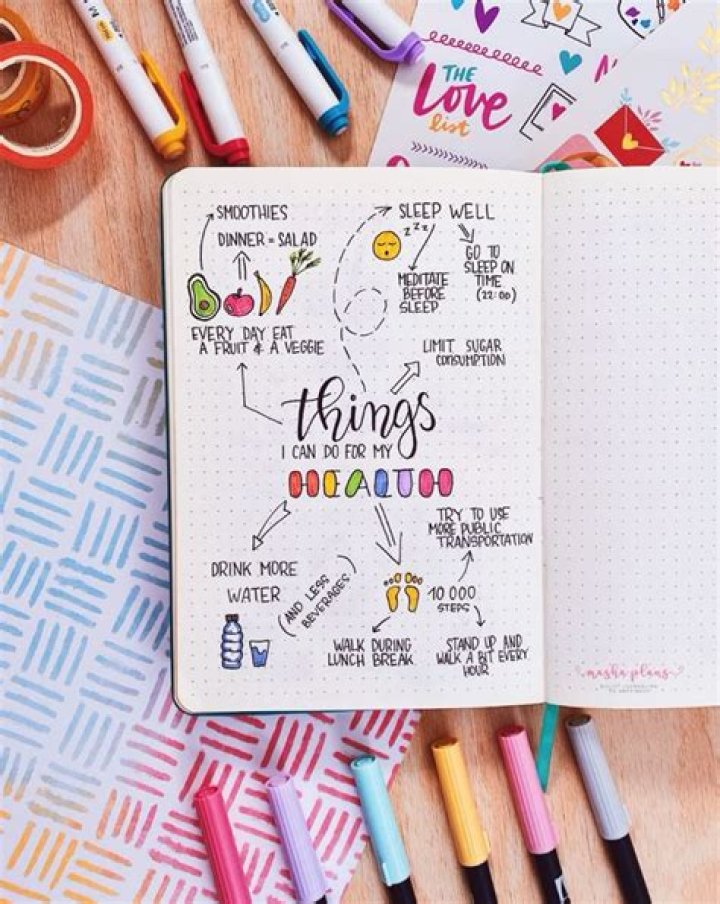 THE
Love
list
SMOOTHIES
DINNER = SALAD
EVERY DAY EAT
A FRUIT & A VEGGIE
SLEEP WELL
zzz
MEDITATE
BEFORE
SLEEP
GO TO
SLEEP ON
TIME
(22:00)
LIMIT SUGAR
CONSUMPTION
things
I CAN DO FOR MY
HEALTH
DRINK MORE
WATER
(AND LESS
BEVERAGES)
TRY TO USE
MORE PUBLIC
TRANSPORTATION
10 000
STEPS
WALK DURING
LUNCH BREAK
STAND UP AND
WALK A BIT EVERY
HOUR
masha plans